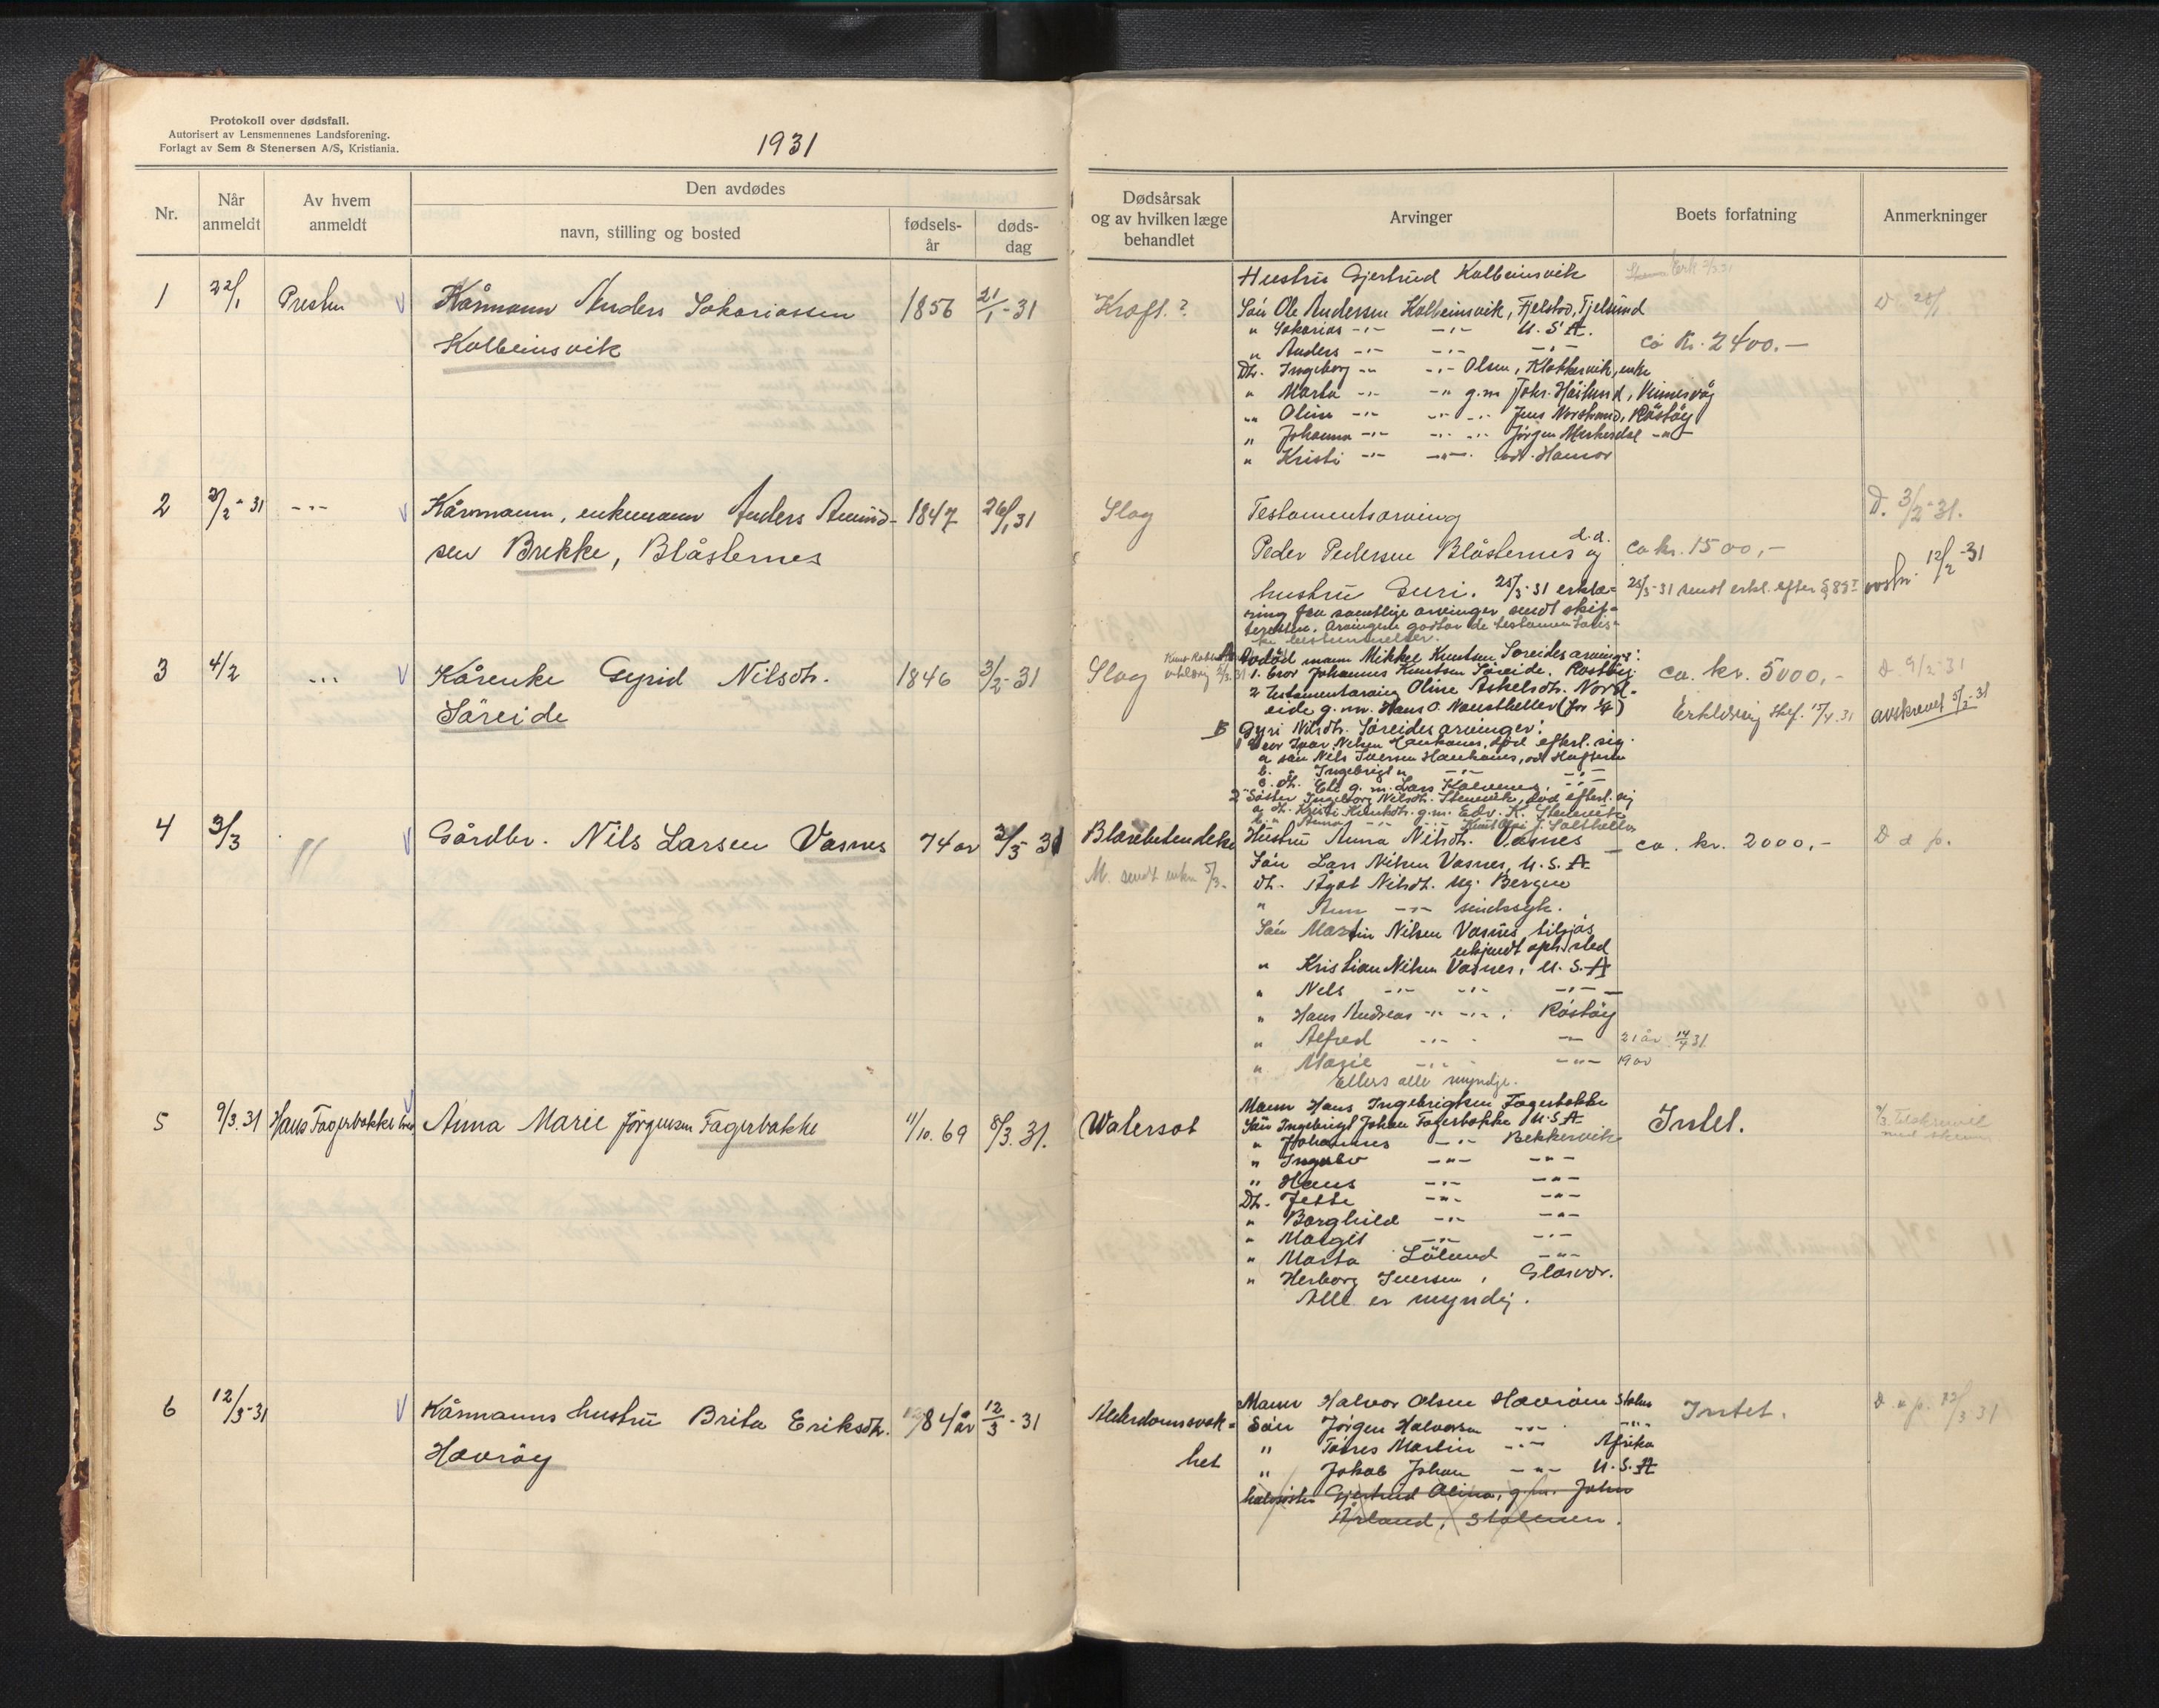 Protokoll over dødsfall.
Autorisert av Lensmennenes Landsforening.
Forlagt av Sem & Stenersen A/S, Kristiania.
1931
Nr.
Når anmeldt
Av hvem anmeldt
Den avdødes
navn, stilling og bosted
fødsels-
år
døds-
dag
Dødsårsak
og av hvilken læge
behandlet
Arvinger
Boets forfatning
Anmerkninger
1 22/1 Presten Kårmann Anders Sakariassen 1856 21/1-31 Kræft.?
Kolbeinsvik
Hustru Gjertrud Kolbeinsvik
Sön Ole Andersen Kolbeinsvik, Fjelstø, Fjelsund
" Sakarias -"- -"- U.S.A.
" Anders -"- -"- -"-
Dtr. Ingeborg -"- -"- Olsen, Klokkervik, enke
" Marta -"- -"- g.m. Johs. Häiland, Vinnesvåg
" Oline -"- -"- -"- Jens Norstrand, Röstöy
" Johanna -"- -"- -"- Jörgen -"-
" Kristi -"- -"-
ca kr. 2400.-
D 28/1
2 3/2-31 -"- Kårmann, enkemann Anders Amund- 1847 26/1 31 Slag
sen Brekke, Blåsternes
Testamentsarving
Peder Pedersen Blåsternes d.d. og
hustru Guri. 25/3-31 erklæ-
ring fra samtlige arvinger sendt skif-
teretten. Arvingene godtar de testamentaris-
ke bestemmelser.
ca kr. 1500,-
25/3-31 sendt erkl. efter § 85
D. 3/2-31.
avskr. 12/2-31
3 4/2 -"- Kårenke Gyrid Nilsdtr. 1846 3/2-31 Slag
Söreide
A Avdöd mann Mikkel Knutsen Söreides arvinger:
1. bror Johannes Knutsen Söreide, Rostöy
2 testamentarving Oline Askelsdtr. Nord-
eide g.m. Hans O. Naustheller (for 1/4)
B Gyri Nilsdtr. Söreides arvinger:
1 Bror Ivar Nilsen Haukanes, död efterl. sig
a sön Nils Iversen Haukanes,
b. " Ingebrigt " -"- -"-
c. dtr. g.m. Lars
2 Söster Ingeborg Nilsdtr. Stenevik, död efterl. sig
a dtr. Kristi Knutsdtr. g.m. Edv. K. Stenevik
b. " Anna
ca. kr. 5000,-
Erklæring skf. 15/4.31
D. 9/2-31
avskrevet 5/2-31
4 3/3 " Gårdbr. Nils Larsen Vasnes 74 år 2/3 31 Blærebetendelse
M. sendt enken 5/3.
Hustru Anna Nilsdtr. Vasnes
Sön Lars Nilsen Vasnes, U.S.A
dtr. Ågot Nilsdtr. ug. Bergen
" Ann -"- sindssyk.
Sön Martin Nilsen Vasnes tilsjøs
ukjendt oph.sted
" Kristian Nilsen Vasnes, U.S.A
" Nels -"- -"- -"-
" Hans Andreas -"- -"- , Röstöy
" Alfred -"- - -"- 21 år 14/4 31
" Marie -"- - -"- 19 år
Ellers alle myndige.
ca. kr. 2000,-
D d p.
5 9/3.31 Hans Fagerbakke Anna Marie Jörgensen Fagerbakke 11/10.69 8/3.31. Watersot
Mann Hans Ingebrigtsen Fagerbakke
Sön Ingebrigt Johan Fagerbakke U.S.A
" Johannes -"- Bekkervik
" Ingolv -"- -"-
" Hans -"- -"-
Dtr. Jette -"- -"-
" Borghild -"- -"-
" Margit -"- -"-
" Marta Lölund -"-
" Herborg Iversen, Glesvær.
Alle er myndig.
Intet.
6 12/3-31 Kårmanns hustru Brita Eriksdtr. 84 år 12/3-31 Alderdomssvak-
Hovröy
het
Mann Halvor Olsen Hovröy Stolm
Sön Jörgen Halvorsen -"- -"-
" Tönnes Martin -"- Afrika
" Jakob Johan -"- U.S.A
halvsöster Gjertrud Olina, g.m. John
Årland, Stolmen.
Intet.
D. a p. 12/3 31